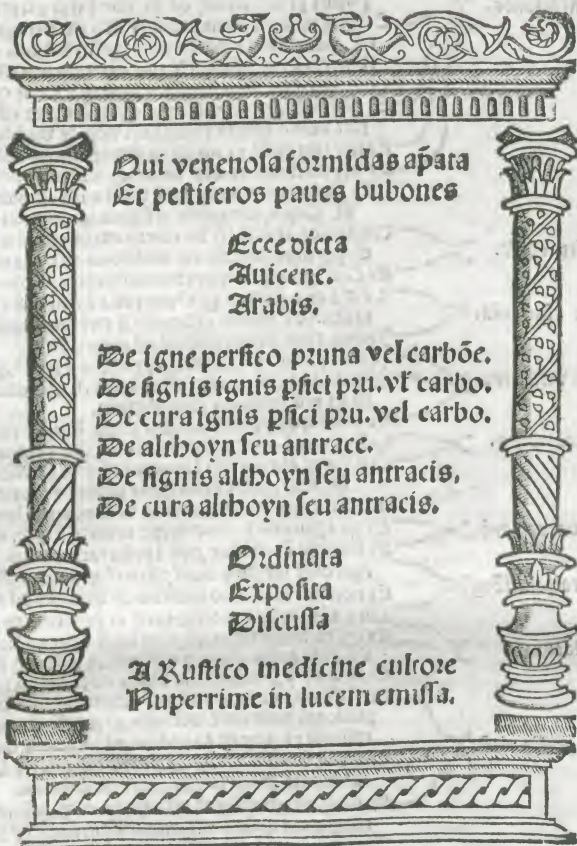 Qui venenosa formidas ap̄ata
Et pestiferos paues bubones
Ecce dicta
Auicene.
Arabis.
De igne persico pruna vel carbōe.
De signis ignis ꝑsici pru. vł carbo.
De cura ignis ꝑsici pru. vel carbo.
De althoyn seu antrace.
De signis althoyn seu antracis.
De cura althoyn seu antracis.
Ordinata
Exposita
Discussa
A Rustico medicine cultore
Nuperrime in lucem emissa.